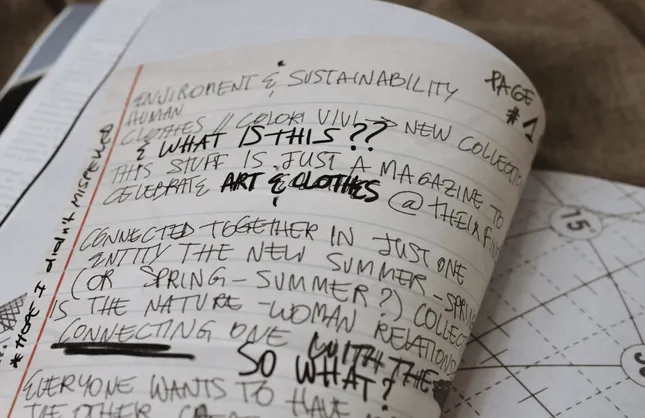 PAGE
#1
ENVIROMENT & SUSTAINABILITY
HUMAN
CLOTHES // COLORI VIVI → NEW COLLECTI
& WHAT IS THIS??
THIS STUFF IS JUST A MAGAZINE TO
CELEBRATE ART & CLOTHES @ THEIR FIN
CONNECTED TOGETHER IN JUST ONE
ENTITY THE NEW SUMMER - SPRIN
(OR SPRING - SUMMER?) COLLECT
IS THE NATURE - WOMAN RELATION
CONNECTING ONE WITH THE
SO WHAT?
EVERYONE WANTS TO HAVE
THE OTHER
* HOPE I didn't MISSPELLED
15